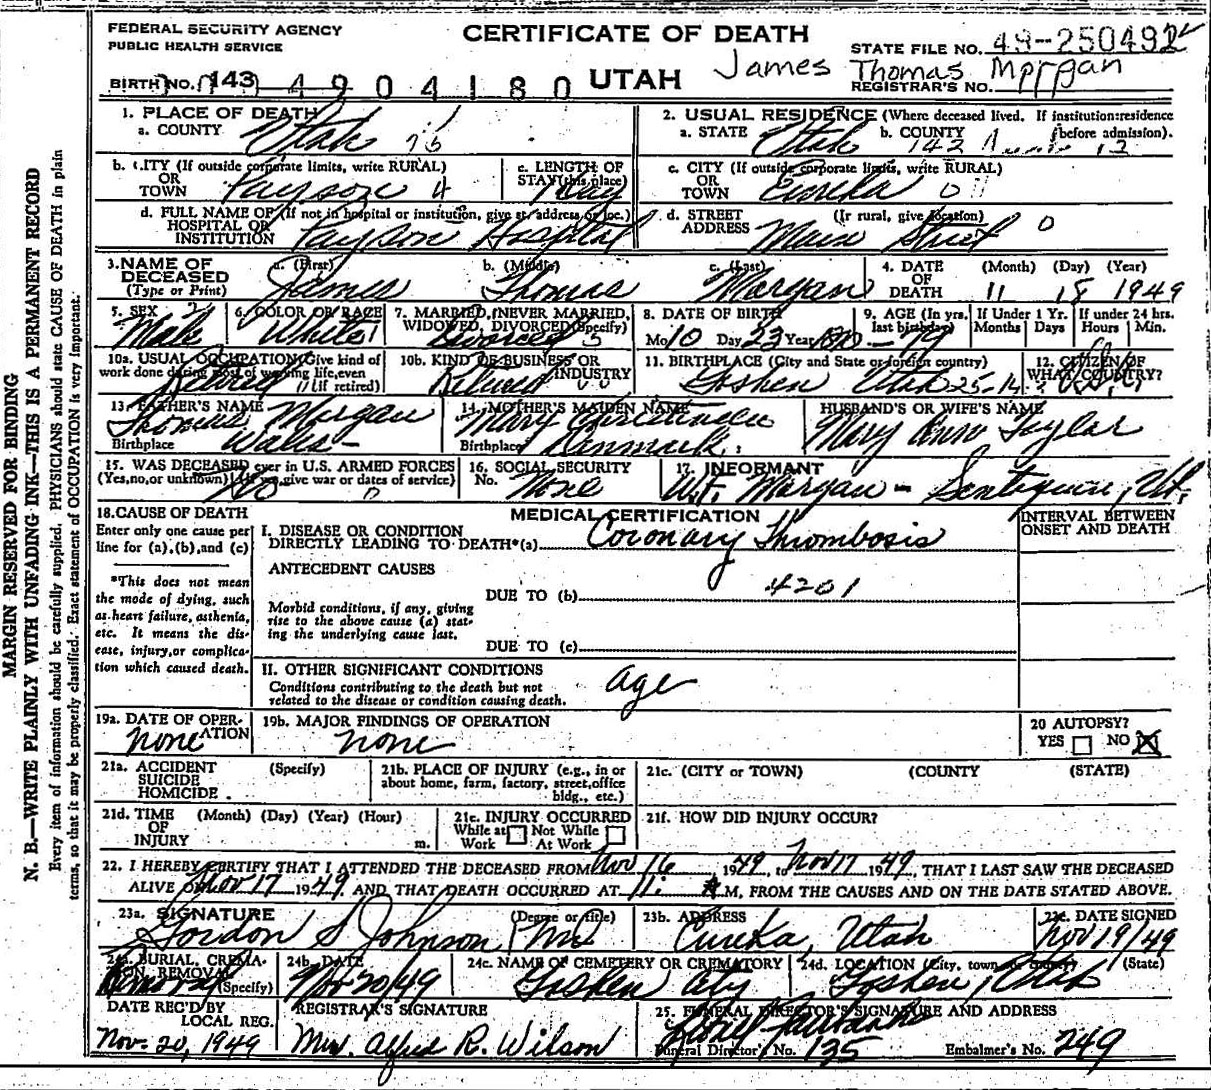 FEDERAL SECURITY AGENCY
PUBLIC HEALTH SERVICE
CERTIFICATE OF DEATH
STATE FILE NO. 49-250492
BIRTH NO. 143 4904180 UTAH James Thomas Morgan
REGISTRAR'S NO.
1. PLACE OF DEATH
a. COUNTY Utah
2. USUAL RESIDENCE (Where deceased lived. If institution: residence before admission).
a. STATE Utah b. COUNTY 142
b. CITY (If outside corporate limits, write RURAL) OR TOWN Payson
c. LENGTH OF STAY (this place) 1 day
c. CITY (If outside corporate limits, write RURAL) OR TOWN Eureka
d. FULL NAME OF (If not in hospital or institution, give st. address or loc.) HOSPITAL OR INSTITUTION Payson Hospital
d. STREET ADDRESS (Ir rural, give location) Main Street
3. NAME OF DECEASED (Type or Print)
a. (First) James b. (Middle) Thomas c. (Last) Morgan
4. DATE OF DEATH (Month) (Day) (Year) 11 18 1949
5. SEX Male
6. COLOR OR RACE White
7. MARRIED, NEVER MARRIED, WIDOWED, DIVORCED (Specify) Divorced
8. DATE OF BIRTH Mo 10 Day 23 Year 1870
9. AGE (In yrs. last birthday) 79
If Under 1 Yr. Months Days
If under 24 hrs. Hours Min.
10a. USUAL OCCUPATION (Give kind of work done during most of working life, even if retired) Retired
10b. KIND OF BUSINESS OR INDUSTRY Retired
11. BIRTHPLACE (City and State or foreign country) Goshen Utah
12. CITIZEN OF WHAT COUNTRY? U.S.A.
13. FATHER'S NAME Thomas Morgan
Birthplace Wales
14. MOTHER'S MAIDEN NAME Mary
Birthplace Denmark
HUSBAND'S OR WIFE'S NAME
Mary Ann Taylor
15. WAS DECEASED ever in U.S. ARMED FORCES (Yes, no, or unknown) (If yes, give war or dates of service) No
16. SOCIAL SECURITY No. None
17. INFORMANT
W.F. Morgan - Santaquin, Ut.
18. CAUSE OF DEATH
Enter only one cause per line for (a), (b), and (c)
MEDICAL CERTIFICATION
INTERVAL BETWEEN ONSET AND DEATH
I. DISEASE OR CONDITION DIRECTLY LEADING TO DEATH*(a) Coronary Thrombosis
*This does not mean the mode of dying, such as heart failure, asthenia, etc. It means the disease, injury, or complication which caused death.
ANTECEDENT CAUSES
DUE TO (b) 4201
Morbid conditions, if any, giving rise to the above cause (a) stating the underlying cause last.
DUE TO (c)
II. OTHER SIGNIFICANT CONDITIONS
Conditions contributing to the death but not related to the disease or condition causing death.
age
19a. DATE OF OPERATION none
19b. MAJOR FINDINGS OF OPERATION
none
20 AUTOPSY?
YES NO X
21a. ACCIDENT SUICIDE HOMICIDE (Specify)
21b. PLACE OF INJURY (e.g., in or about home, farm, factory, street, office bldg., etc.)
21c. (CITY or TOWN) (COUNTY (STATE)
21d. TIME OF INJURY (Month) (Day) (Year) (Hour) m.
21e. INJURY OCCURRED
While at Work Not While At Work
21f. HOW DID INJURY OCCUR?
22. I HEREBY CERTIFY THAT I ATTENDED THE DECEASED FROM Nov 16 1949, to Nov 17 1949, THAT I LAST SAW THE DECEASED
ALIVE ON Nov 17 1949 AND THAT DEATH OCCURRED AT 11: A M, FROM THE CAUSES AND ON THE DATE STATED ABOVE.
23a. SIGNATURE (Degree or title)
Gordon S Johnson
23b. ADDRESS
Eureka, Utah
23c. DATE SIGNED
Nov 19/49
24a. BURIAL, CREMATION, REMOVAL (Specify) Removal
24b. DATE Nov 20/49
24c. NAME OF CEMETERY OR CREMATORY
Goshen City
24d. LOCATION (City, town, or county) (State)
Goshen, Utah
DATE REC'D BY LOCAL REG.
Nov. 20, 1949
REGISTRAR'S SIGNATURE
Mrs. Alfred R. Wilson
25. FUNERAL DIRECTOR'S SIGNATURE AND ADDRESS
Funeral Director's No. 135 Embalmer's No. 249
MARGIN RESERVED FOR BINDING
N. B.—WRITE PLAINLY WITH UNFADING INK—THIS IS A PERMANENT RECORD
Every item of information should be carefully supplied. PHYSICIANS should state CAUSE OF DEATH in plain
terms, so that it may be properly classified. Exact statement of OCCUPATION is very important.